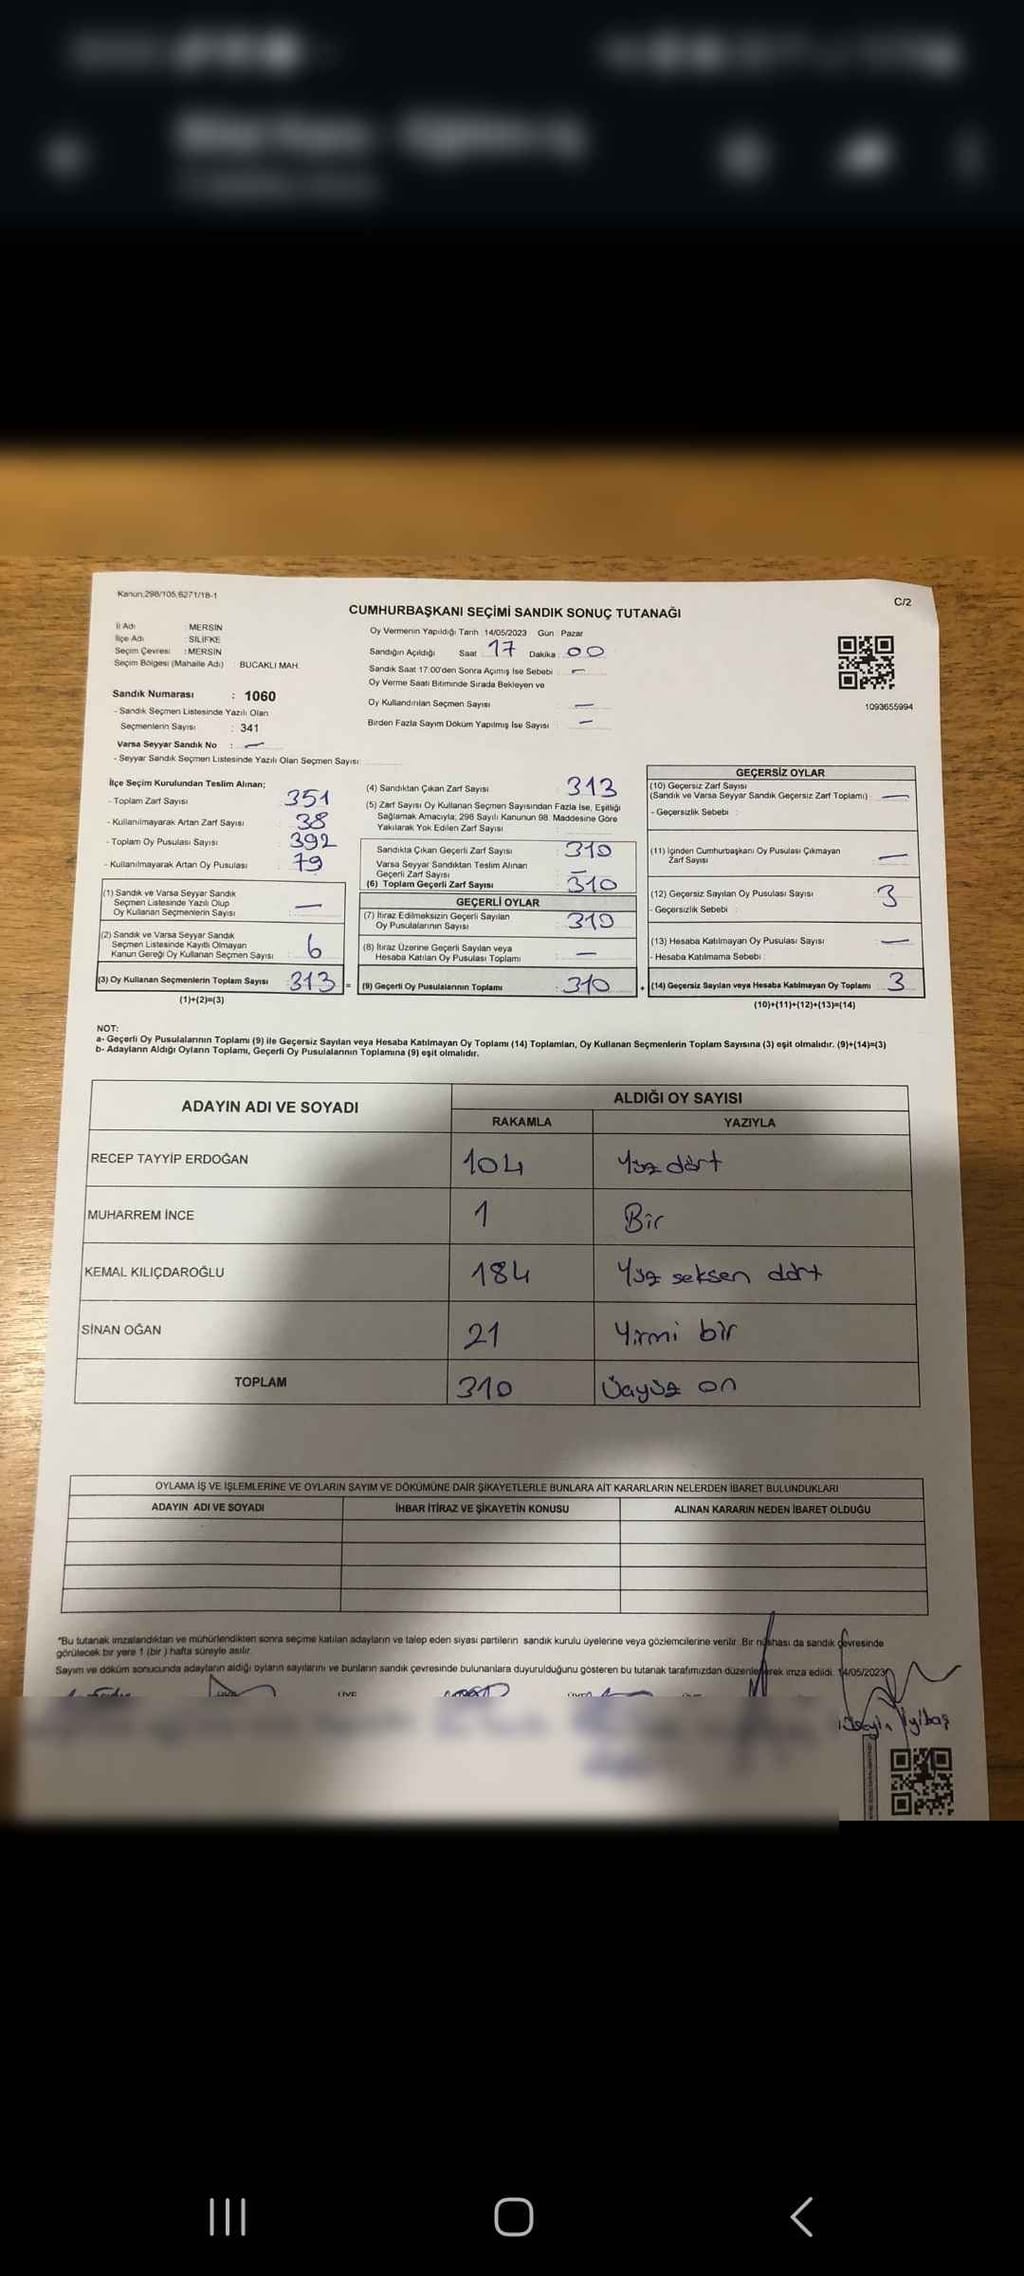 Kanun,298/105,6271/18-1
C/2
CUMHURBAŞKANI SEÇİMİ SANDIK SONUÇ TUTANAĞI
İl Adı : MERSİN
İlçe Adı : SİLİFKE
Seçim Çevresi : MERSİN
Seçim Bölgesi (Mahalle Adı) BUCAKLI MAH.
Sandık Numarası : 1060
- Sandık Seçmen Listesinde Yazılı Olan
Seçmenlerin Sayısı : 341
Varsa Seyyar Sandık No : —
- Seyyar Sandık Seçmen Listesinde Yazılı Olan Seçmen Sayısı:
Oy Vermenin Yapıldığı Tarih 14/05/2023 Gün Pazar
Sandığın Açıldığı Saat 17 Dakika 00
Sandık Saat 17:00'den Sonra Açılmış İse Sebebi —
Oy Verme Saati Bitiminde Sırada Bekleyen ve
Oy Kullandırılan Seçmen Sayısı —
Birden Fazla Sayım Döküm Yapılmış İse Sayısı —
1093655994
İlçe Seçim Kurulundan Teslim Alınan;
- Toplam Zarf Sayısı 351
- Kullanılmayarak Artan Zarf Sayısı 38
- Toplam Oy Pusulası Sayısı 392
- Kullanılmayarak Artan Oy Pusulası 79
(1) Sandık ve Varsa Seyyar Sandık
Seçmen Listesinde Yazılı Olup
Oy Kullanan Seçmenlerin Sayısı —
(2) Sandık ve Varsa Seyyar Sandık
Seçmen Listesinde Kayıtlı Olmayan
Kanun Gereği Oy Kullanan Seçmen Sayısı 6
(3) Oy Kullanan Seçmenlerin Toplam Sayısı 313 =
(1)+(2)=(3)
(4) Sandıktan Çıkan Zarf Sayısı : 313
(5) Zarf Sayısı Oy Kullanan Seçmen Sayısından Fazla İse, Eşitliği
Sağlamak Amacıyla; 298 Sayılı Kanunun 98. Maddesine Göre
Yakılarak Yok Edilen Zarf Sayısı :
Sandıkta Çıkan Geçerli Zarf Sayısı : 310
Varsa Seyyar Sandıktan Teslim Alınan
Geçerli Zarf Sayısı : —
(6) Toplam Geçerli Zarf Sayısı : 310
GEÇERLİ OYLAR
(7) İtiraz Edilmeksizin Geçerli Sayılan
Oy Pusulalarının Sayısı : 310
(8) İtiraz Üzerine Geçerli Sayılan veya
Hesaba Katılan Oy Pusulası Toplamı : —
(9) Geçerli Oy Pusulalarının Toplamı : 310 +
GEÇERSİZ OYLAR
(10) Geçersiz Zarf Sayısı
(Sandık ve Varsa Seyyar Sandık Geçersiz Zarf Toplamı) : —
- Geçersizlik Sebebi :
(11) İçinden Cumhurbaşkanı Oy Pusulası Çıkmayan
Zarf Sayısı —
(12) Geçersiz Sayılan Oy Pusulası Sayısı : 3
- Geçersizlik Sebebi :
(13) Hesaba Katılmayan Oy Pusulası Sayısı : —
- Hesaba Katılmama Sebebi :
(14) Geçersiz Sayılan veya Hesaba Katılmayan Oy Toplamı : 3
(10)+(11)+(12)+(13)=(14)
NOT:
a- Geçerli Oy Pusulalarının Toplamı (9) ile Geçersiz Sayılan veya Hesaba Katılmayan Oy Toplamı (14) Toplamları, Oy Kullanan Seçmenlerin Toplam Sayısına (3) eşit olmalıdır. (9)+(14)=(3)
b- Adayların Aldığı Oyların Toplamı, Geçerli Oy Pusulalarının Toplamına (9) eşit olmalıdır.
ADAYIN ADI VE SOYADI ALDIĞI OY SAYISI
RAKAMLA YAZIYLA
RECEP TAYYİP ERDOĞAN 104 Yüz dört
MUHARREM İNCE 1 Bir
KEMAL KILIÇDAROĞLU 184 Yüz seksen dört
SİNAN OĞAN 21 Yirmi bir
TOPLAM 310 Üçyüz on
OYLAMA İŞ VE İŞLEMLERİNE VE OYLARIN SAYIM VE DÖKÜMÜNE DAİR ŞİKAYETLERLE BUNLARA AİT KARARLARIN NELERDEN İBARET BULUNDUKLARI
ADAYIN ADI VE SOYADI İHBAR İTİRAZ VE ŞİKAYETİN KONUSU ALINAN KARARIN NEDEN İBARET OLDUĞU
"Bu tutanak imzalandıktan ve mühürlendikten sonra seçime katılan adayların ve talep eden siyasi partilerin sandık kurulu üyelerine veya gözlemcilerine verilir. Bir nüshası da sandık çevresinde
görülecek bir yere 1 (bir ) hafta süreyle asılır.
Sayım ve döküm sonucunda adayların aldığı oyların sayılarını ve bunların sandık çevresinde bulunanlara duyurulduğunu gösteren bu tutanak tarafımızdan düzenlenerek imza edildi. 14/05/2023